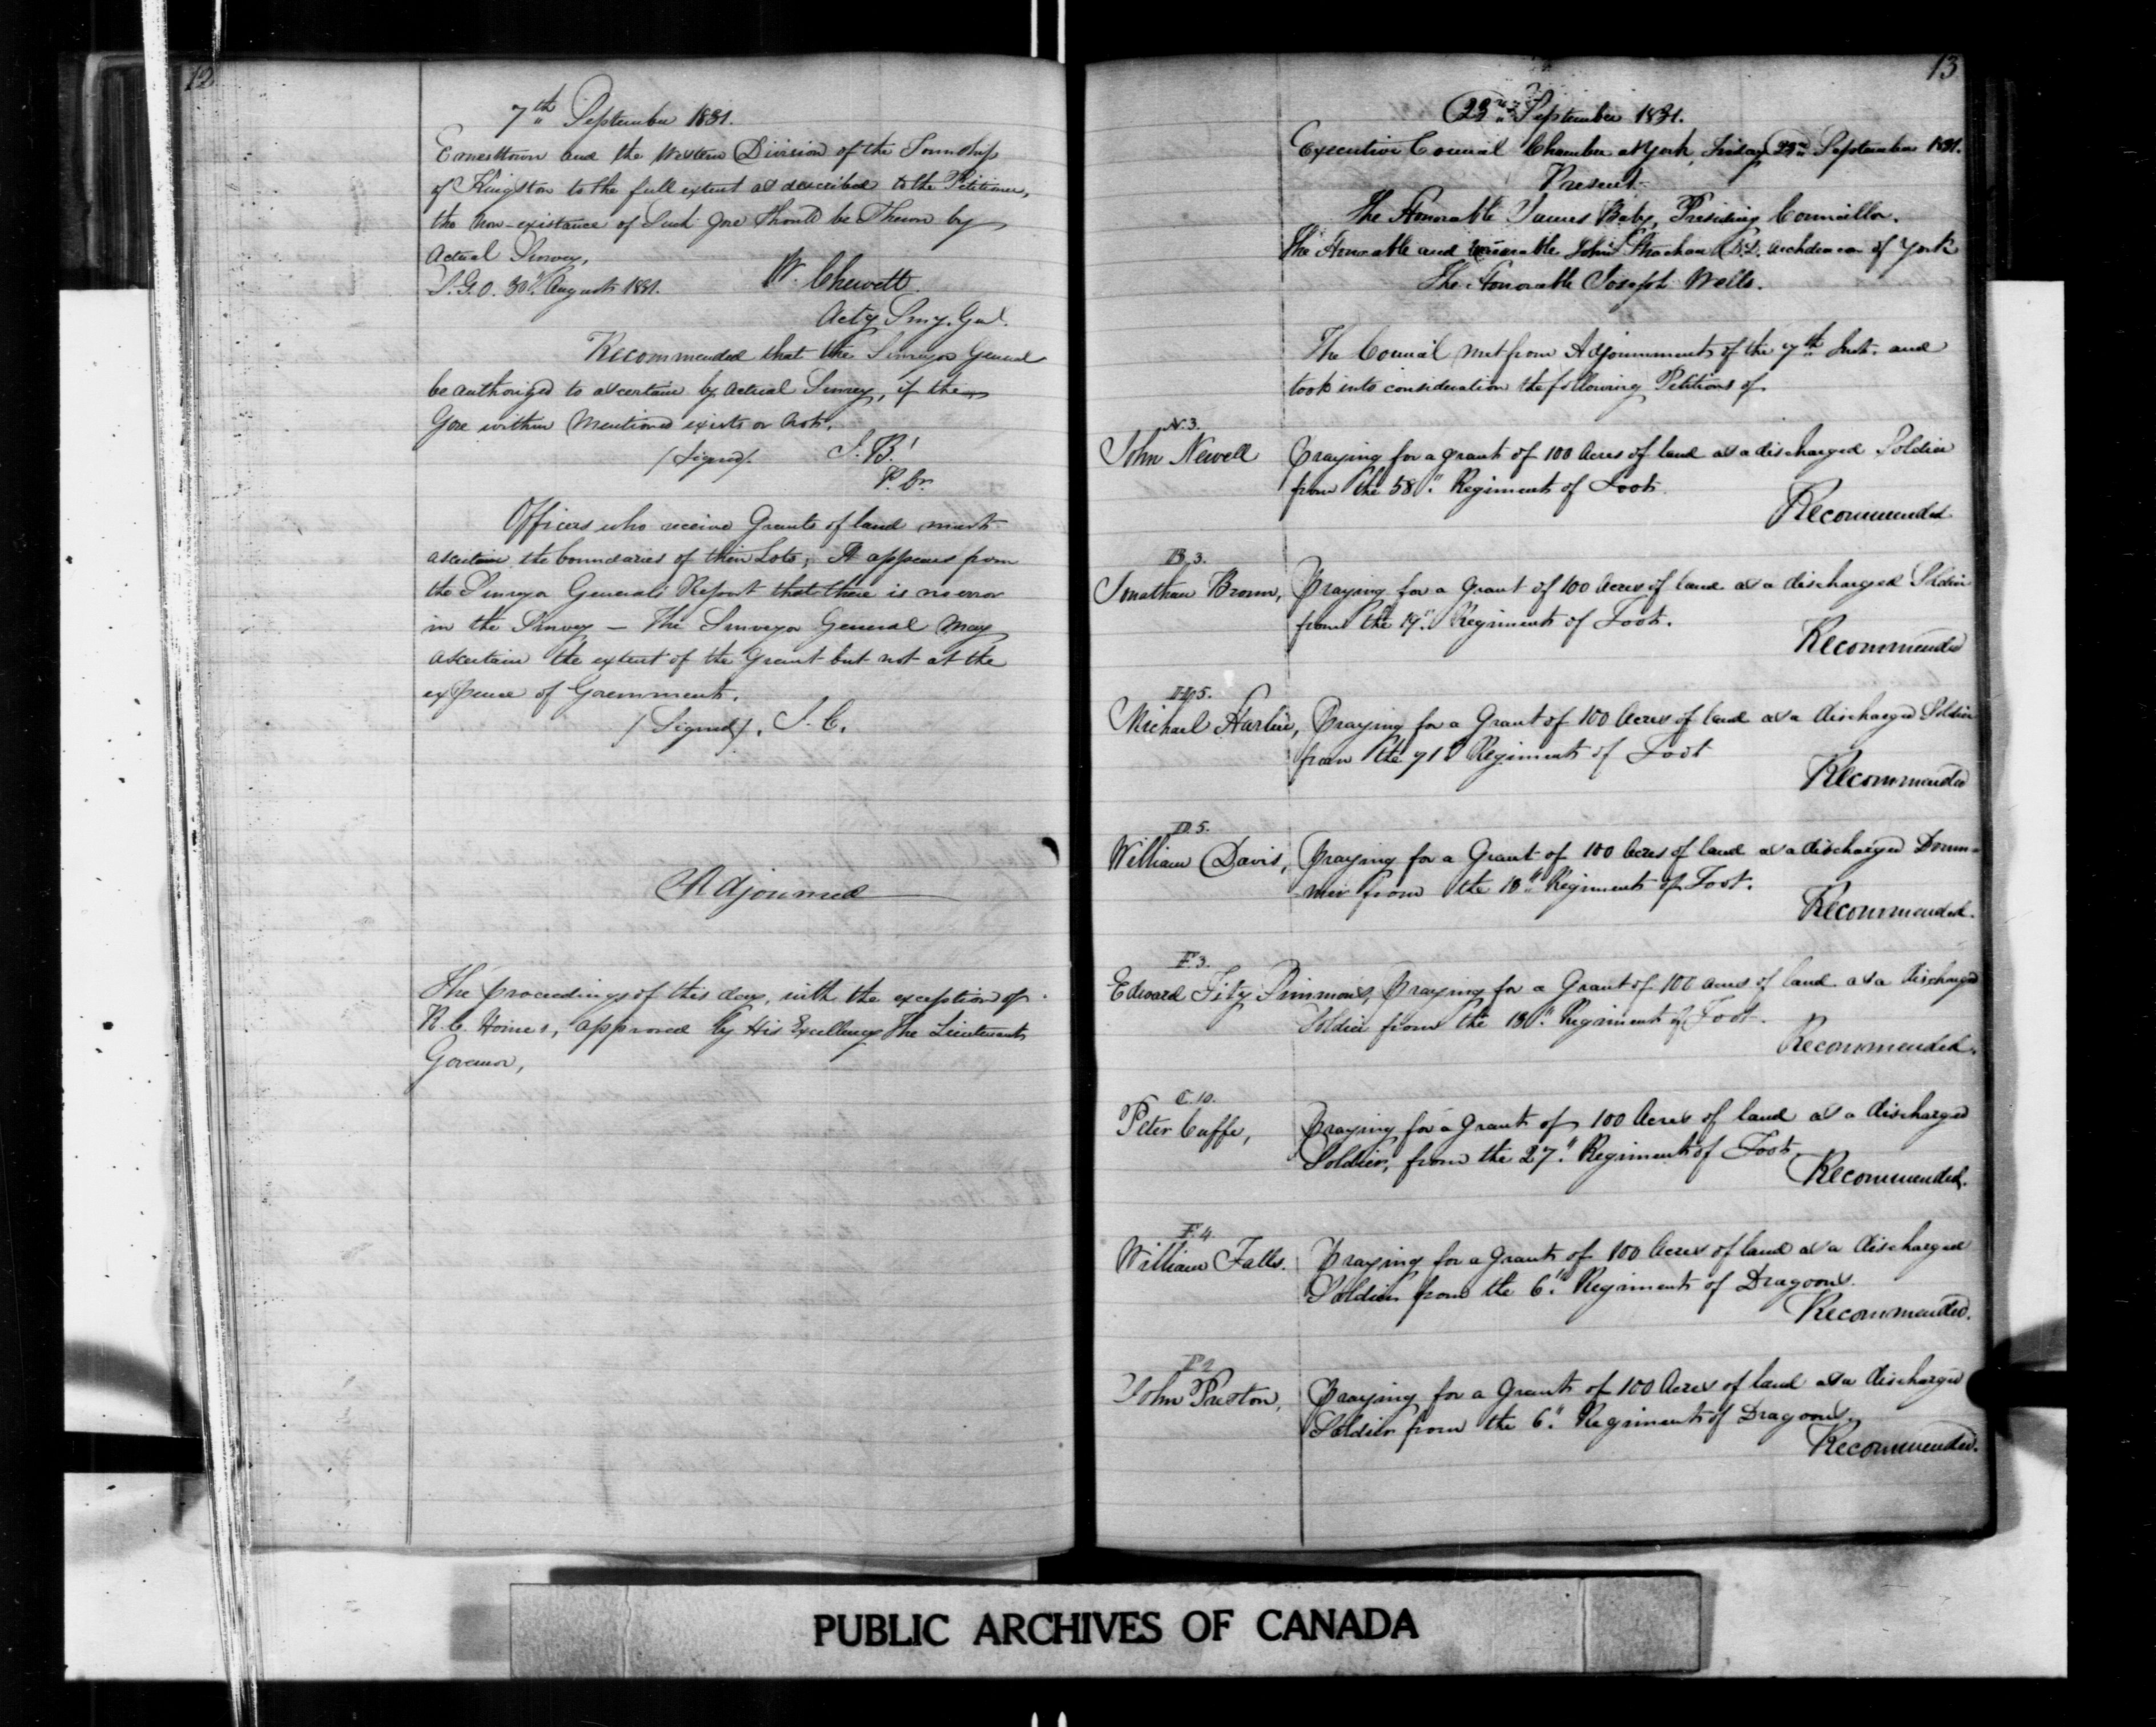 12
7th September 1831.
Ernesttown and the Western Division of the Township
of Kingston to the full extent as described to the Petitioner,
the non-existance of Such Gore should be Shewn by
Actual Survey,
S.G.O. 30th August 1831. W. Chewett.
Actg Survy. Genl.
Recommended that the Surveyor General
be authorized to ascertain by actual Survey, if the
Gore within Mentioned exists or not.
(Signed). J. B.
P. Cr.
Officers who receive Grants of land must
ascertain the boundaries of their Lots; It appears from
the Surveyor Generals Report that there is no error
in the Survey — The Surveyor General may
ascertain the extent of the Grant but not at the
expence of Government.
(Signed). J. C.
Adjourned
The proceedings of this day, with the exception of
R. C. Horne's, approved by His Excellency The Lieutenant
Governor,
13
23rd September 1831.
Executive Council Chamber at York, Friday 23rd September 1831.
Present
The Honorable James Baby, Presiding Councillor.
The Honorable and Venerable John Strachan D.D. Archdeacon of York
The Honorable Joseph Wells.
The Council met from Adjournment of the 7th Inst. and
took into consideration the following Petitions of
N. 3.
John Newell Praying for a grant of 100 Acres of land as a discharged Soldier
from the 58" Regiment of Foot.
Recommended
B. 3.
Jonathan Brown, Praying for a Grant of 100 Acres of land as a discharged Soldier
from the 19" Regiment of Foot.
Recommended
H. 5.
Michael Harlin, Praying for a Grant of 100 Acres of land as a discharged Soldier
from the 71st Regiment of Foot
Recommended
D. 5.
William Davis, Praying for a Grant of 100 Acres of land as a discharged Drum-
mer from the 18" Regiment of Foot.
Recommended.
F. 3.
Edward Fitz Simmons, Praying for a Grant of 100 acres of land as a discharged
Soldier from the 18" Regiment of Foot.
Recommended.
C. 10.
Peter Cuffe, Praying for a Grant of 100 Acres of land as a discharged
Soldier, from the 27" Regiment of Foot.
Recommended.
F. 4.
William Falls. Praying for a Grant of 100 Acres of land as a discharged
Soldier from the 6" Regiment of Dragoons.
Recommended.
P. 2
John Preston, Praying for a Grant of 100 Acres of land as a discharged
Soldier from the 6" Regiment of Dragoons.
Recommended.
PUBLIC ARCHIVES OF CANADA